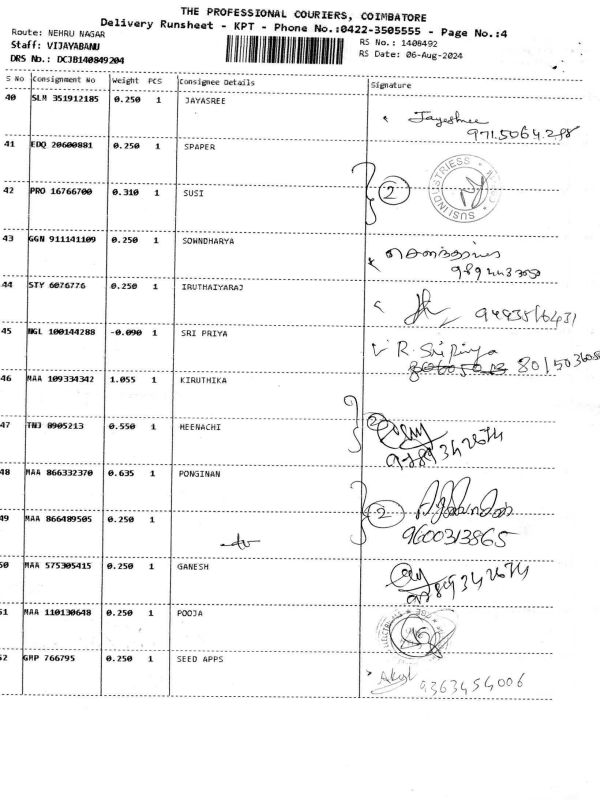 THE PROFESSIONAL COURIERS, COIMBATORE
Delivery Runsheet - KPT - Phone No.:0422-3505555 - Page No.:4
Route: NEHRU NAGAR
RS No.: 1408492
Staff: VIJAYABANU
RS Date: 06-Aug-2024
DRS No.: DCJB140849204
S No Consignment No Weight PCS Consignee Details Signature
40 SLM 351912185 0.250 1 JAYASREE
Jayashree
41 EDQ 20600881 0.250 1 SPAPER
42 PRO 16766700 0.310 1 SUSI 2
SUSI INDUSTRIESS
43 GGN 911141109 0.250 1 SOWNDHARYA
44 STY 6076776 0.250 1 IRUTHAIYARAJ
45 NGL 100144288 -0.090 1 SRI PRIYA
R. Sri Priya
46 MAA 109334342 1.055 1 KIRUTHIKA
47 TNJ 0905213 0.550 1 MEENACHI 2
9789342674
48 MAA 866332370 0.635 1 PONGINAN
49 MAA 866489505 0.250 1 2
9600313865
50 MAA 575305415 0.250 1 GANESH
9789342674
51 MAA 110130648 0.250 1 POOJA
52 GMP 766795 0.250 1 SEED APPS
9363454006